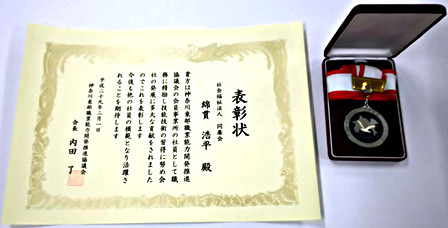 表彰状
社会福祉法人 同塵会
綿貫 浩平 殿
貴方は神奈川東部職業能力開発推進
協議会の会員事業所の社員として職
務に精励し技能技術の習得に努め会
社の発展に多大な貢献をされました
のでこれを表彰します
今後も他の社員の模範となり活躍さ
れることを期待します
平成二十九年二月一日
神奈川東部職業能力開発推進協議会
会長 内田 了